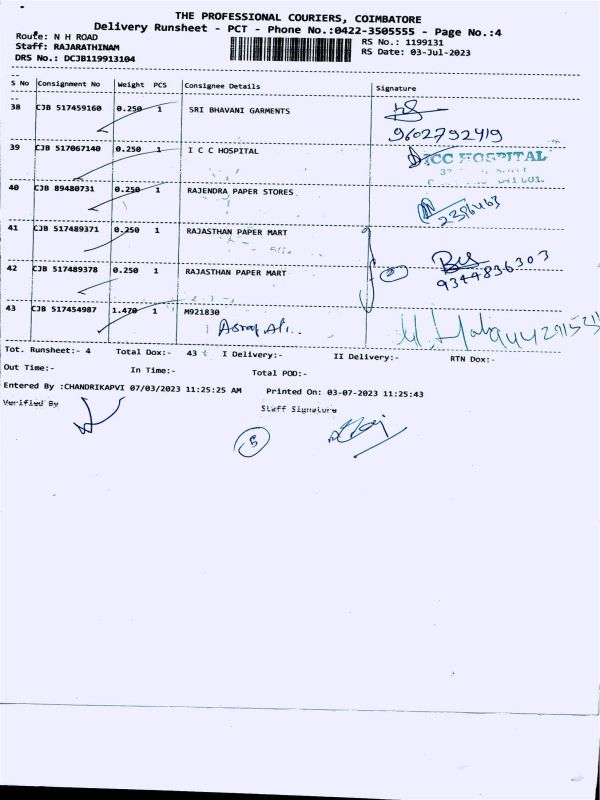 THE PROFESSIONAL COURIERS, COIMBATORE
Delivery Runsheet - PCT - Phone No.:0422-3505555 - Page No.:4
Route: N H ROAD
RS No.: 1199131
Staff: RAJARATHINAM
RS Date: 03-Jul-2023
DRS No.: DCJB119913104
S No Consignment No Weight PCS Consignee Details Signature
38 CJB 517459160 0.250 1 SRI BHAVANI GARMENTS
9602792419
39 CJB 517067140 0.250 1 I C C HOSPITAL ICC HOSPITAL
40 CJB 89480731 0.250 1 RAJENDRA PAPER STORES
41 CJB 517489371 0.250 1 RAJASTHAN PAPER MART
42 CJB 517489378 0.250 1 RAJASTHAN PAPER MART 2 9344836303
43 CJB 517454987 1.470 1 M921830
Asraf Ali..
Tot. Runsheet:- 4 Total Dox:- 43 I Delivery:- II Delivery:- RTN Dox:-
Out Time:- In Time:- Total POD:-
Entered By :CHANDRIKAPVI 07/03/2023 11:25:25 AM Printed On: 03-07-2023 11:25:43
Verified By Staff Signature
5